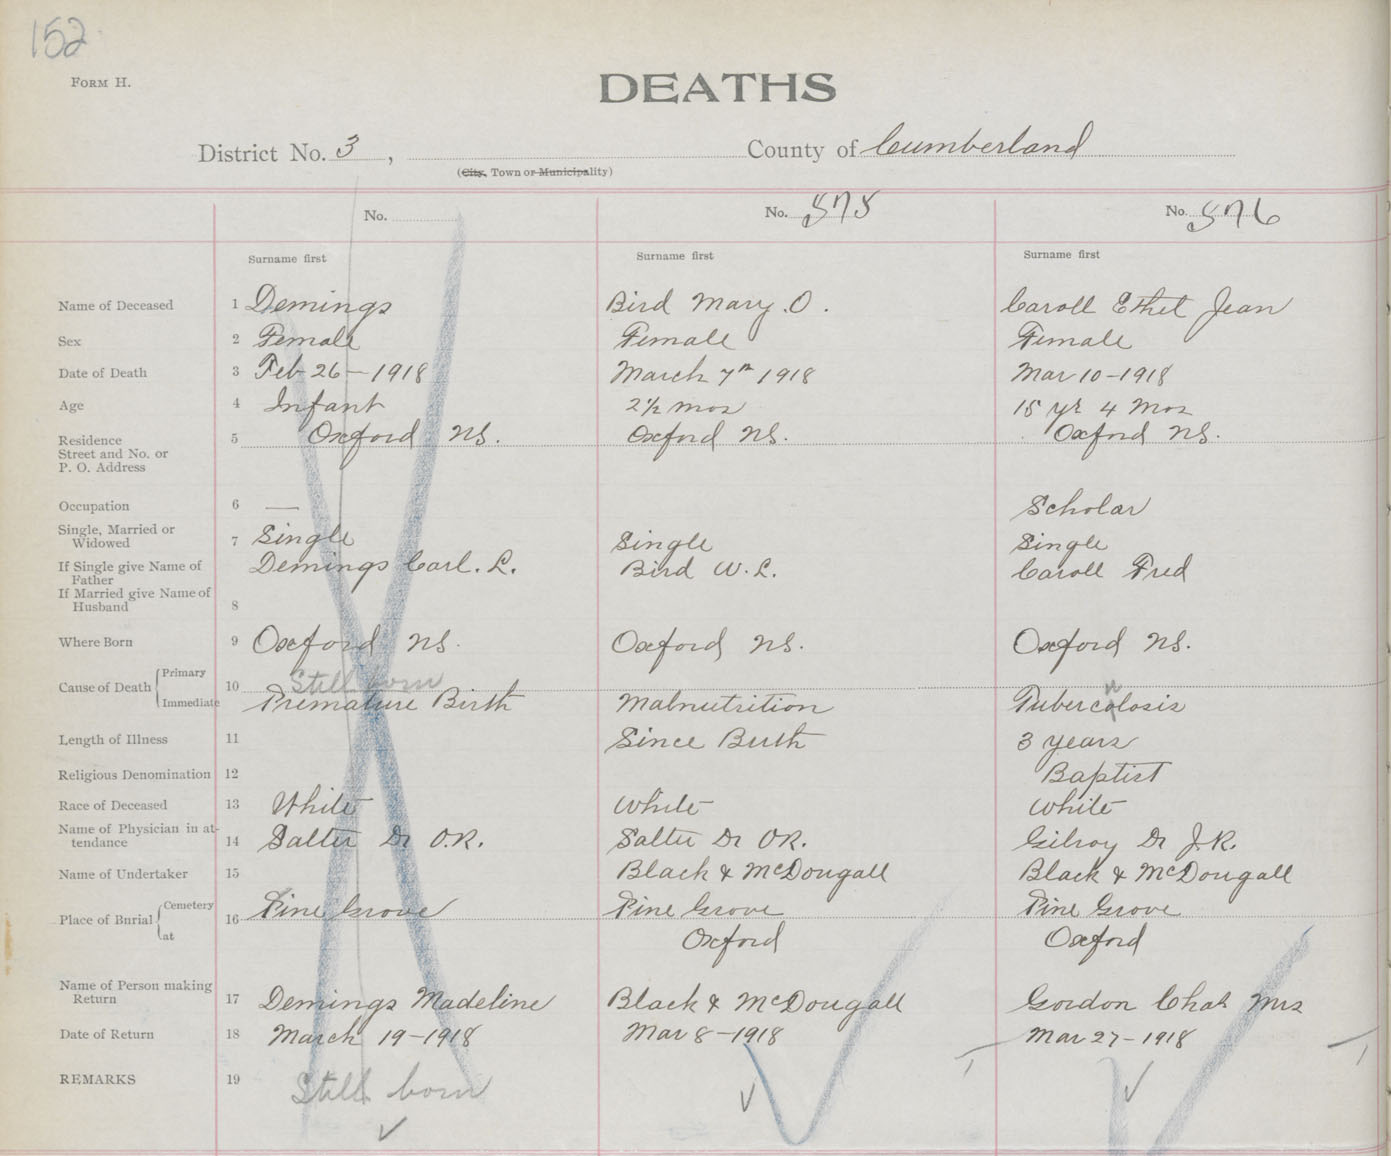 152
FORM H.
DEATHS
District No. 3, County of Cumberland
(City, Town or Municipality)
No. No. 575 No. 576
Surname first Surname first Surname first
Name of Deceased 1 Demings Bird Mary. O. Caroll Ethel Jean
Sex 2 Female Female Female
Date of Death 3 Feb 26-1918 March 7th 1918 Mar 10-1918
Age 4 Infant 2½ mos 15 yr 4 mos
Residence 5 Oxford NS. Oxford NS. Oxford NS.
Street and No. or
P. O. Address
Occupation 6 — Scholar
Single, Married or
Widowed 7 Single Single Single
If Single give Name of Demings Carl. L. Bird W. L. Caroll Fred
Father
If Married give Name of
Husband 8
Where Born 9 Oxford NS. Oxford NS. Oxford NS.
Primary Still born
Cause of Death 10
Immediate Premature Birth Malnutrition Tubercolosis
u
Length of Illness 11 Since Birth 3 years
Religious Denomination 12 Baptist
Race of Deceased 13 White White White
Name of Physician in at-
tendance 14 Salter Dr O.R. Salter Dr O.R. Gilroy Dr J.R.
Name of Undertaker 15 Black & McDougall Black & McDougall
Cemetery Pine Grove Pine Grove Pine Grove
Place of Burial 16
at Oxford Oxford
Name of Person making
Return 17 Demings Madeline Black & McDougall Gordon Chas Mrs
Date of Return 18 March 19-1918 Mar 8-1918 Mar 27-1918
REMARKS 19 Still born